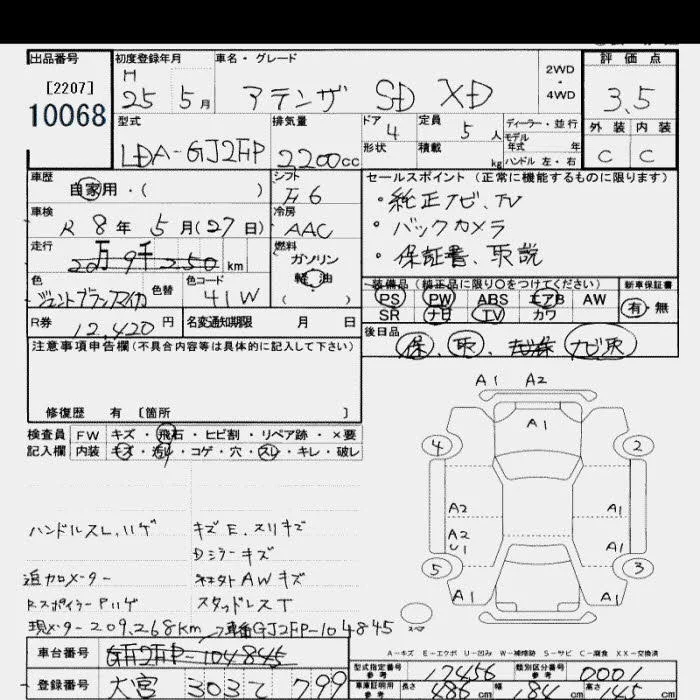 出品番号
[2207]
10068
初度登録年月
H
25 5月
車名・グレード
アテンザ SD XD
2WD
・
4WD
評価点
3.5
外装 内装
C C
型式
LDA-GJ2FP
排気量
2200cc
ドア
4
形状
定員
5人
積載
kg
ディーラー・並行
モデル
年式 年
ハンドル 左・右
車歴
自家用・( )
シフト
F6
セールスポイント(正常に機能するものに限ります)
・純正ナビ、TV
・バックカメラ
・保証書、取説
車検
R 8年 5月(27日)
冷房
AAC
走行
万 千
20 9 250 km
燃料
ガソリン
軽油
( )
色
色替
色コード
41W
装備品(純正品に限り○をつけてください)
PS PW ABS エアB AW
SR ナビ TV カワ
新車保証書
有・無
R券
12,420円
名変通知期限 月 日
後日品
保、取、ナビ取
注意事項申告欄(不具合内容等は具体的に記入して下さい)
修復歴 有 [箇所 ]
検査員
記入欄
FW キズ・飛石・ヒビ割・リペア跡・×要
内装 キズ・汚れ・コゲ・穴・スレ・キレ・破レ
ハンドルスレ、ハゲ
キズE、スリキズ
Dミラーキズ
追加メーター
AWキズ
R.スポイラーPハゲ
スタッドレスT
現メーター209,268km
→車番GJ2FP-104845
A1 A2
A1
4
2
A2
A1
A2
U1
A1
5
3
A1
A1
スペア
A-キズ E-エクボ U-凹み W-補修跡 S-サビ C-腐食 XX-交換済
車台番号
GJ2FP-104845
登録番号
大宮 303 て 799
型式指定番号
参考
17456
類別区分番号
参考
0001
車庫証明用
参考
長さ
486cm
幅
184cm
高さ
145cm